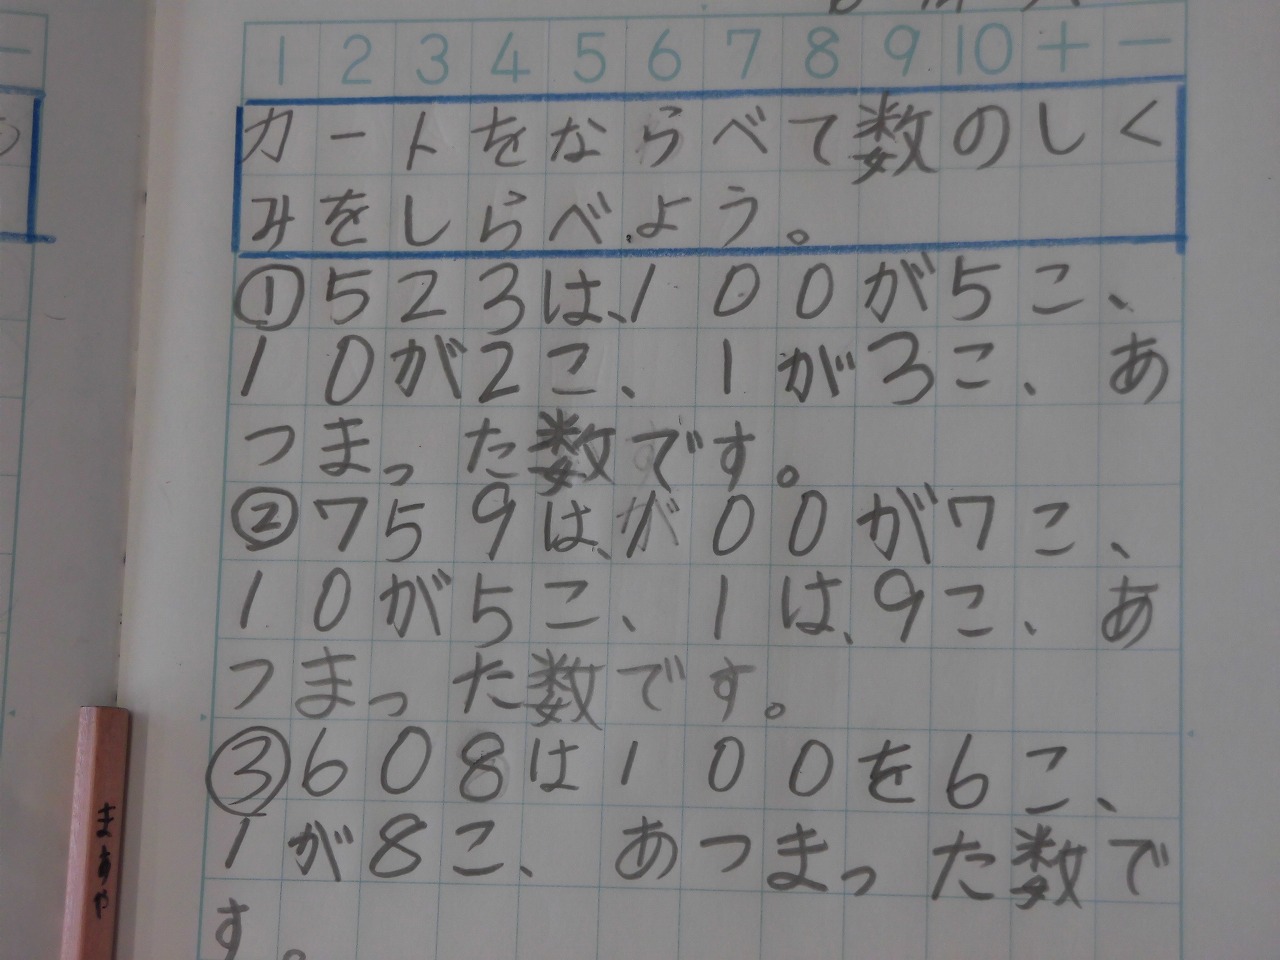 1 2 3 4 5 6 7 8 9 10 + −
カートをならべて数のしく
みをしらべ.よう。
①523は、100が5こ、
10が2こ、1が3こ、あ
つまった数です。
②759は、が00が7こ、
10が5こ、1は、9こ、あ
つまった数です。
③608は100を6こ、
1が8こ、あつまった数で
す。
まあや